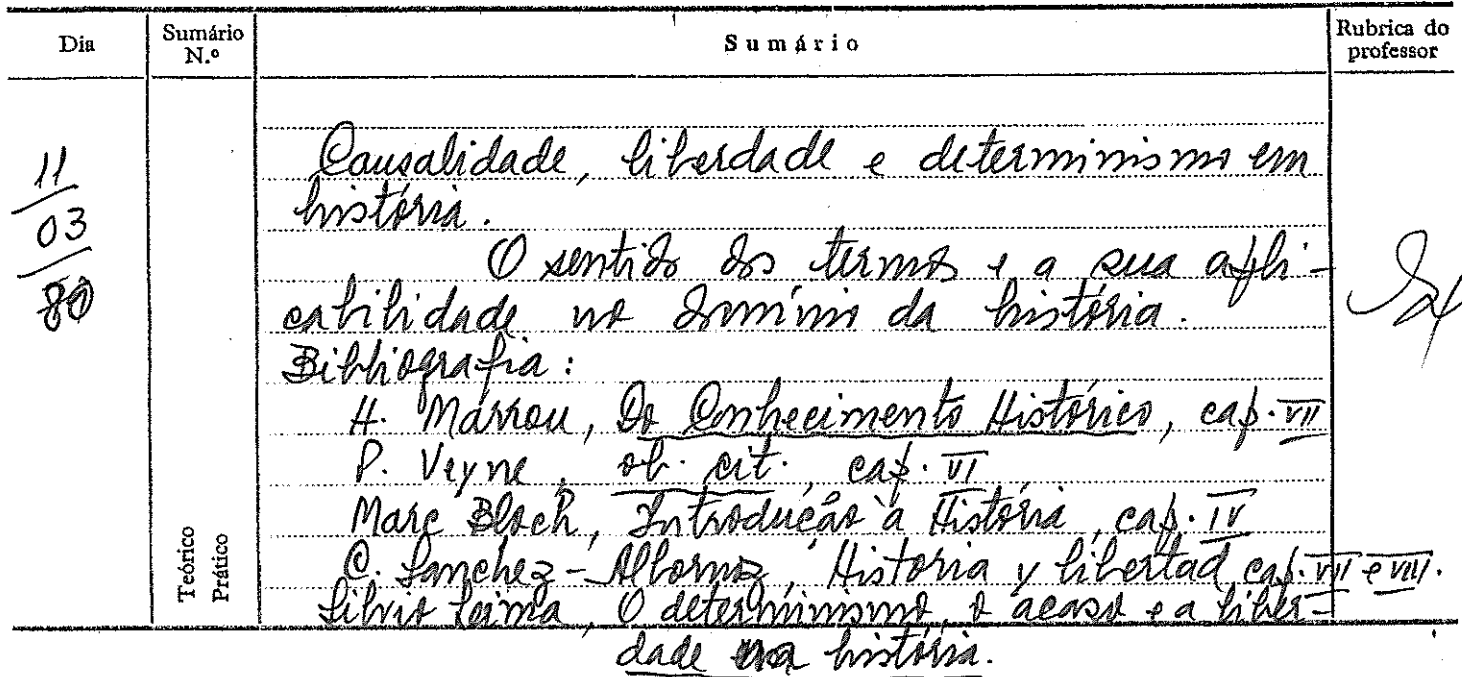 Dia Sumário N.º Sumário Rubrica do professor
11
03
80
Causalidade, liberdade e determinismo em
história.
O sentido dos termos e a sua apli-
cabilidade no domínio da história.
Bibliografia:
H. Marrou, Do Conhecimento Histórico, cap. VII
P. Veyne, ob. cit., cap. VI
Marc Bloch, Introdução à História, cap. IV
C. Sanchez-Albornoz, Historia y libertad, cap. VII e VIII.
Silvio Leima, O determinismo, o acaso e a liber-
dade na história.
Teórico
Prático